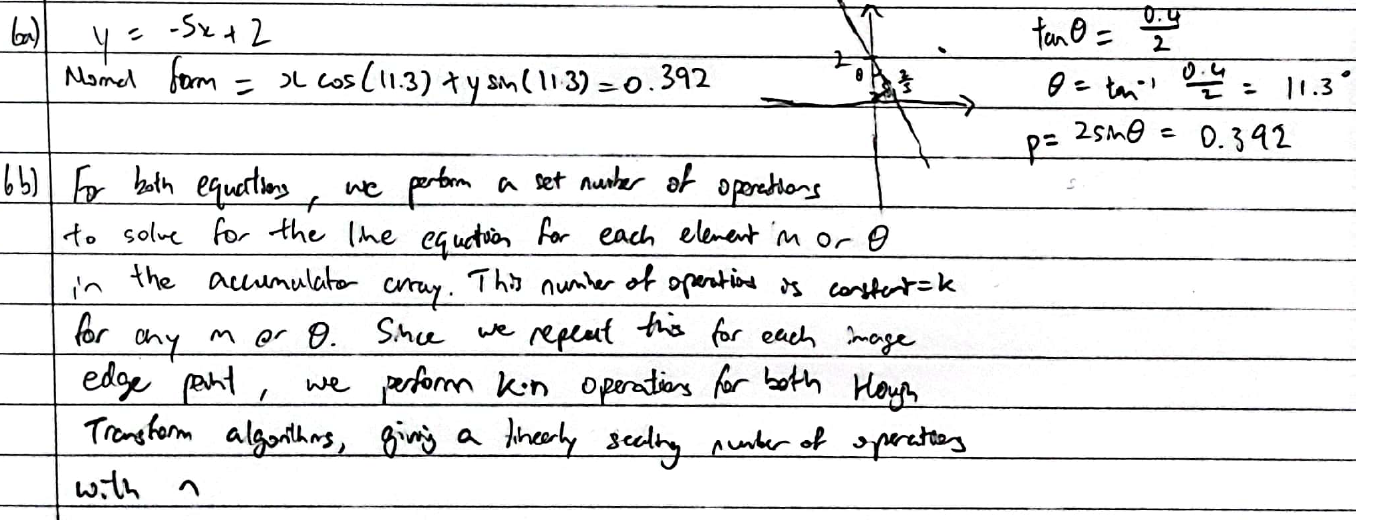 6a) y = -5x + 2
Normal form = x cos(11.3) + y sin(11.3) = 0.392
2 θ 2/5
tanθ = 0.4/2
θ = tan⁻¹ 0.4/2 = 11.3°
p = 2sinθ = 0.392
6b) For both equations, we perform a set number of operations
to solve for the line equation for each element m or θ
in the accumulator array. This number of operations is constant = k
for any m or θ. Since we repeat this for each image
edge point, we perform k·n operations for both Hough
Transform algorithms, giving a linearly scaling number of operations
with n